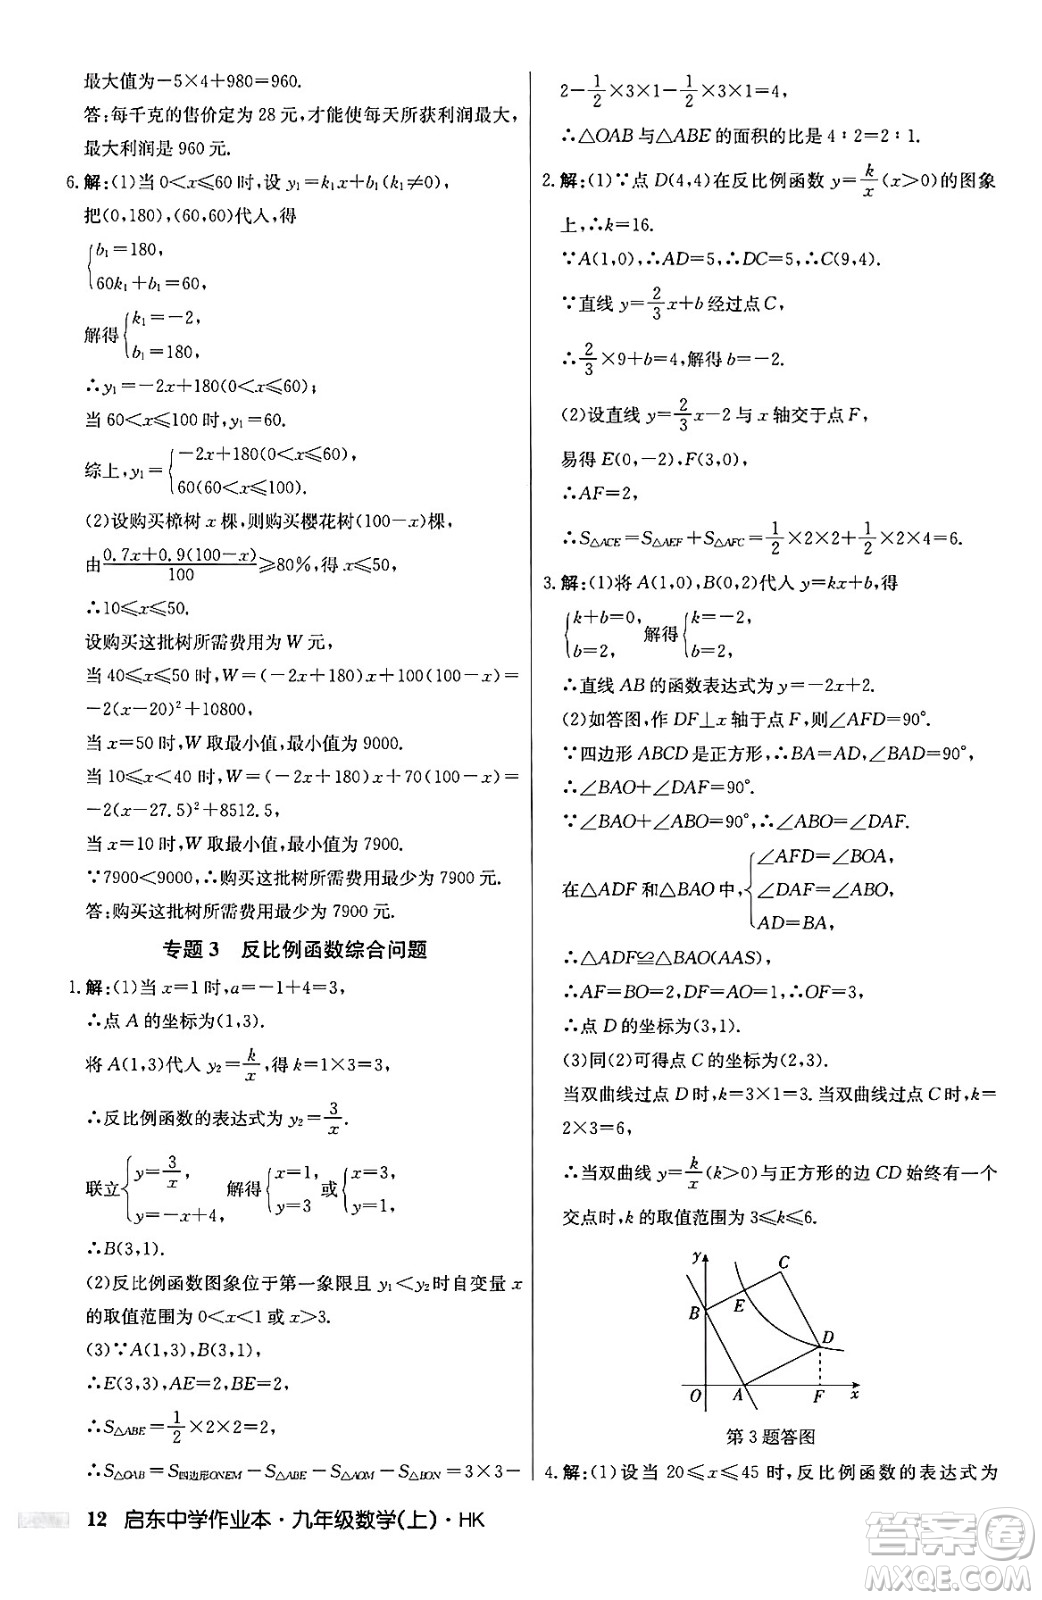 最大值为-5×4+980=960.
答:每千克的售价定为 28 元,才能使每天所获利润最大,
最大利润是 960 元.
6. 解:(1)当 0<x⩽60 时,设 y₁=k₁x+b₁(k₁≠0),
把(0,180),(60,60)代人,得
{b₁=180,
60k₁+b₁=60,
解得{k₁=-2,
b₁=180,
∴y₁=-2x+180(0<x⩽60);
当 60<x⩽100 时,y₁=60.
综上,y₁={-2x+180(0<x⩽60),
60(60<x⩽100).
(2)设购买樟树 x 棵,则购买樱花树(100-x)棵,
由(0.7x+0.9(100-x))/100⩾80%,
∴10⩽x⩽50.
设购买这批树所需费用为 W 元,
当 40⩽x⩽50 时,W=(-2x+180)x+60(100-x)=
-2(x-20)²+10800,
当 x=50 时,W 取最小值,最小值为 9000.
当 10⩽x<40 时,W=(-2x+180)x+70(100-x)=
-2(x-27.5)²+8512.5,
当 x=10 时,W 取最小值,最小值为 7900.
∵7900<9000,∴购买这批树所需费用最少为 7900 元.
答:购买这批树所需费用最少为 7900 元.
专题 3 反比例函数综合问题
1. 解:(1)当 x=1 时,a=-1+4=3,
∴点 A 的坐标为(1,3).
将 A(1,3)代人 y₂=k/x,得 k=1×3=3,
∴反比例函数的表达式为 y₂=3/x.
联立{y=3/x,
y=-x+4,
解得{x=1,
y=3
或{x=3,
y=1,
∴B(3,1).
(2)反比例函数图象位于第一象限且 y₁<y₂时自变量 x
的取值范围为 0<x<1 或 x>3.
(3)∵A(1,3),B(3,1),
∴E(3,3),AE=2,BE=2,
∴S△ABE=1/2×2×2=2,
∴S△OAB=S四边形ONEM-S△ABE-S△AOM-S△BON=3×3-
2-1/2×3×1-1/2×3×1=4,
∴△OAB 与△ABE 的面积的比是 4∶2=2∶1.
2. 解:(1)∵点 D(4,4)在反比例函数 y=k/x(x>0)的图象
上,∴k=16.
∵A(1,0),∴AD=5,∴DC=5,∴C(9,4).
∵直线 y=2/3x+b 经过点 C,
∴2/3×9+b=4,解得 b=-2.
(2)设直线 y=2/3x-2 与 x 轴交于点 F,
易得 E(0,-2),F(3,0),
∴AF=2,
∴S△ACE=S△AEF+S△AFC=1/2×2×2+1/2×2×4=6.
3. 解:(1)将 A(1,0),B(0,2)代人 y=kx+b,得
{k+b=0,
b=2,
解得{k=-2,
b=2,
∴直线 AB 的函数表达式为 y=-2x+2.
(2)如答图,作 DF⊥x 轴于点 F,则∠AFD=90°.
∵四边形 ABCD 是正方形,∴BA=AD,∠BAD=90°,
∴∠BAO+∠DAF=90°.
∵∠BAO+∠ABO=90°,∴∠ABO=∠DAF.
在△ADF 和△BAO 中,{∠AFD=∠BOA,
∠DAF=∠ABO,
AD=BA,
∴△ADF≌△BAO(AAS),
∴AF=BO=2,DF=AO=1,∴OF=3,
∴点 D 的坐标为(3,1).
(3)同(2)可得点 C 的坐标为(2,3).
当双曲线过点 D 时,k=3×1=3,当双曲线过点 C 时,k=
2×3=6,
∴当双曲线 y=k/x(k>0)与正方形的边 CD 始终有一个
交点时,k 的取值范围为 3⩽k⩽6.
y
C
B
E
D
O
A
F
x
第 3 题答图
4. 解:(1)设当 20⩽x⩽45 时,反比例函数的表达式为
12 启东中学作业本·九年级数学(上)·HK
答案圈
MXQE.COM